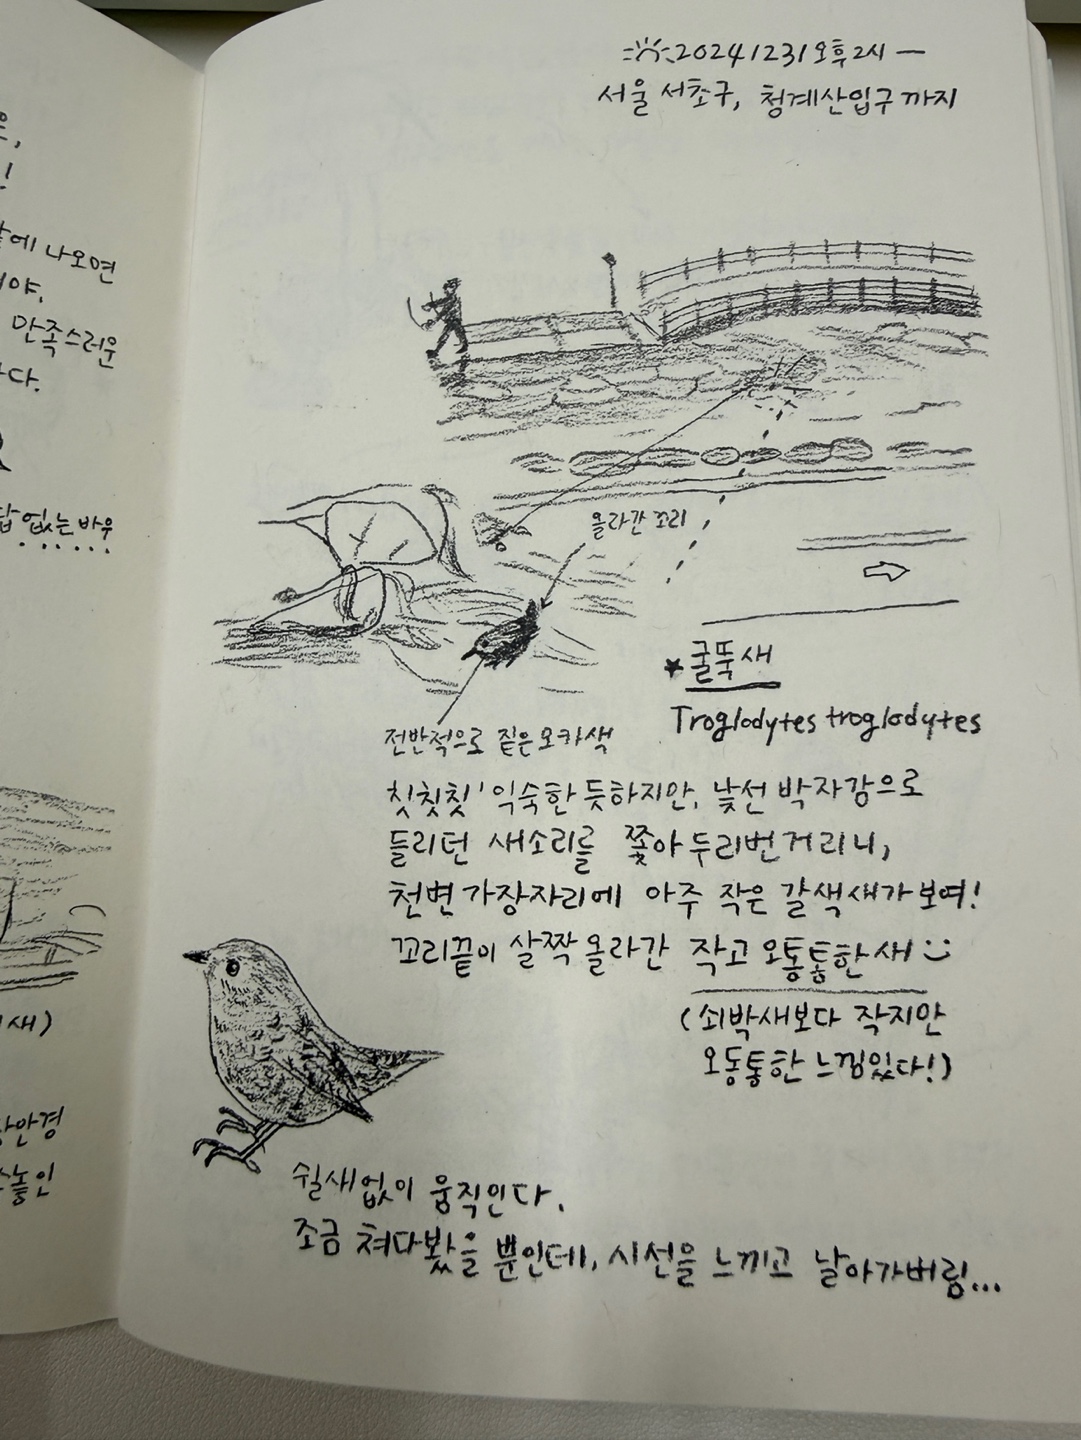 은,
에 나오면
야.
만족스러운
다.
없는 바위
새)
안경
놓인
20241231오후2시 —
서울 서초구, 청계산입구까지
올라간 꼬리
★굴뚝새
Troglodytes troglodytes
전반적으로 짙은 오카색
칫칫칫' 익숙한 듯하지만, 낯선 박자감으로
들리던 새소리를 쫓아 두리번거리니,
천변 가장자리에 아주 작은 갈색새가 보여!
꼬리끝이 살짝 올라간 작고 오통통한 새
(쇠박새보다 작지만
오동통한 느낌있다!)
쉴새없이 움직인다.
조금 쳐다봤을 뿐인데, 시선을 느끼고 날아가버림...